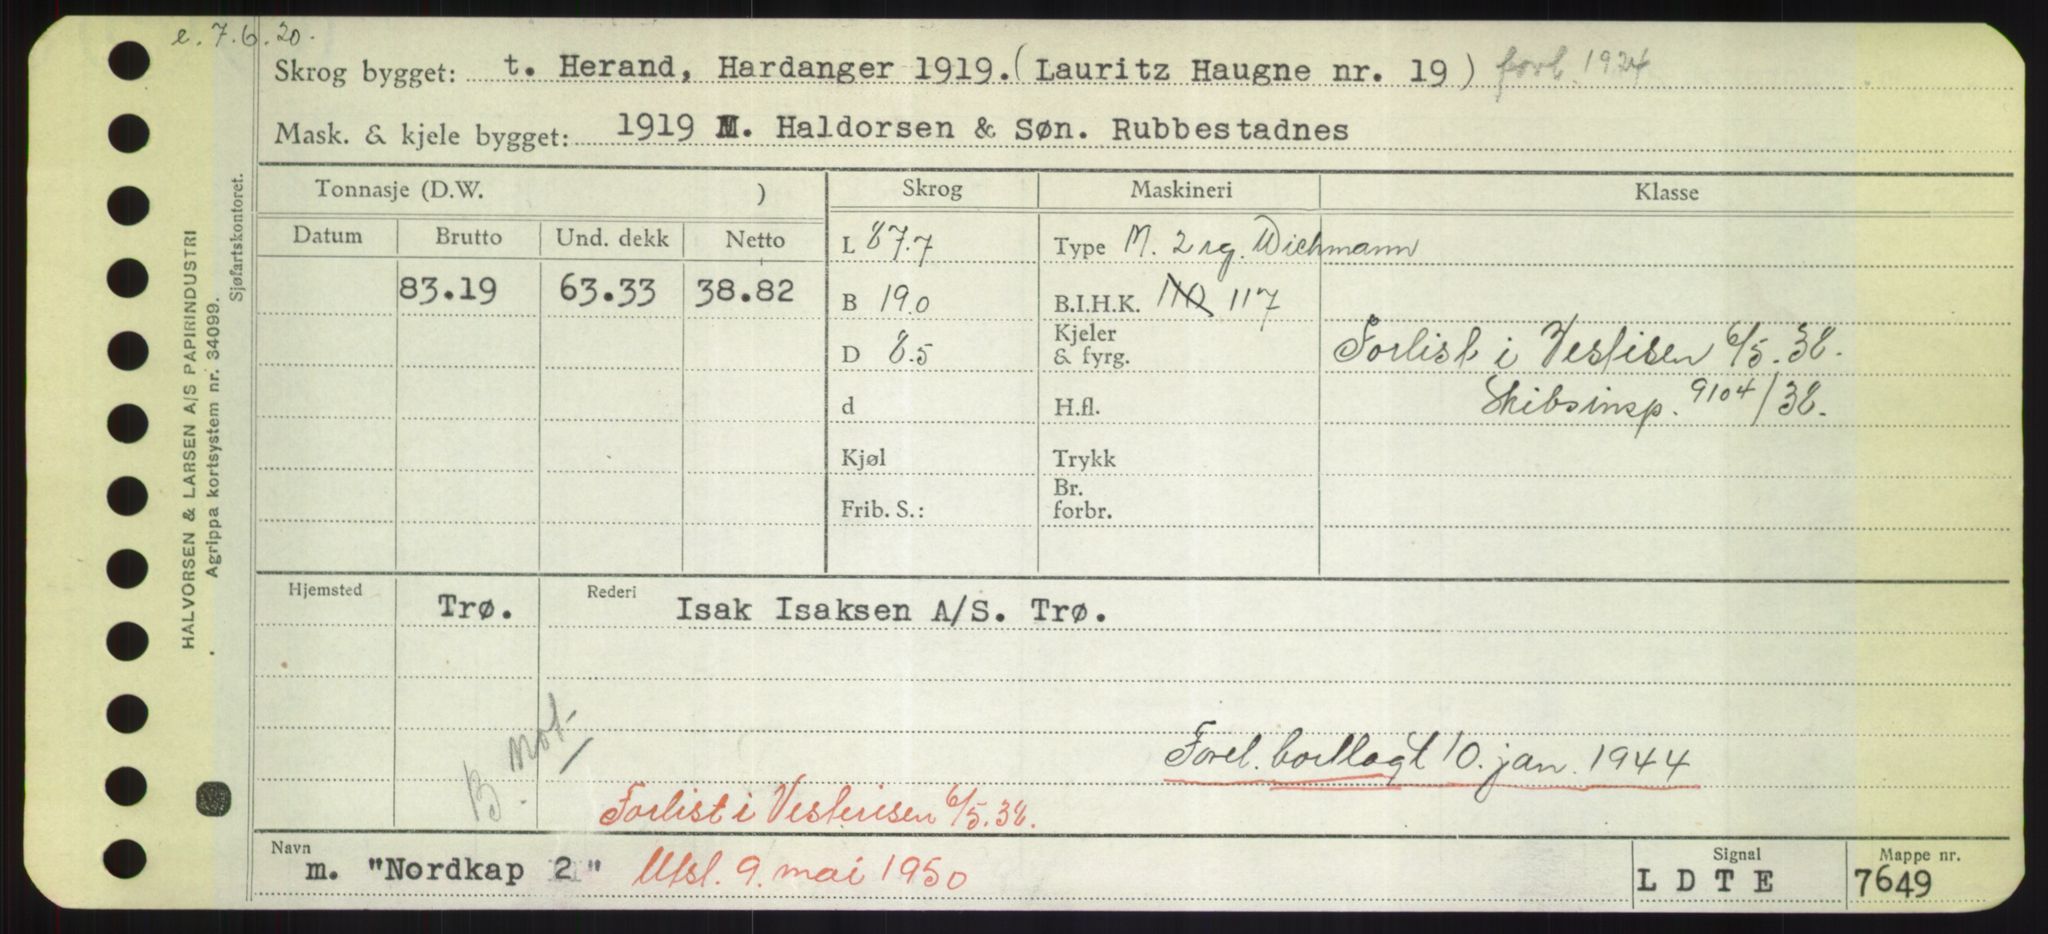 e. 7.6.20.
Skrog bygget: t. Herand, Hardanger 1919. (Lauritz Haugne nr. 19) forl. 1924
Mask. & kjele bygget: 1919 M. Haldorsen & Søn. Rubbestadnes
Tonnasje (D.W. ) Skrog Maskineri Klasse
Datum Brutto Und. dekk Netto L 87.7 Type M. 2 sg. Wichmann
83.19 63.33 38.82 B 19.0 B.I.H.K. 110 117
D 8.5 Kjeler & fyrg. Forlist i Vestisen 6/5.38.
d H.fl. Skibsinsp. 9104/38.
Kjøl Trykk
Frib. S.: Br. forbr.
Hjemsted Trø. Rederi Isak Isaksen A/S. Trø.
B. not.
Forel. bortlagt 10. jan. 1944
Forlist i Vesterisen 6/5.38.
Navn m. "Nordkap 2" Utsl. 9. mai 1950 Signal LDTE Mappe nr. 7649
HALVORSEN & LARSEN A/S PAPIRINDUSTRI
Agrippa kortsystem nr. 34099.
Sjøfartskontoret.